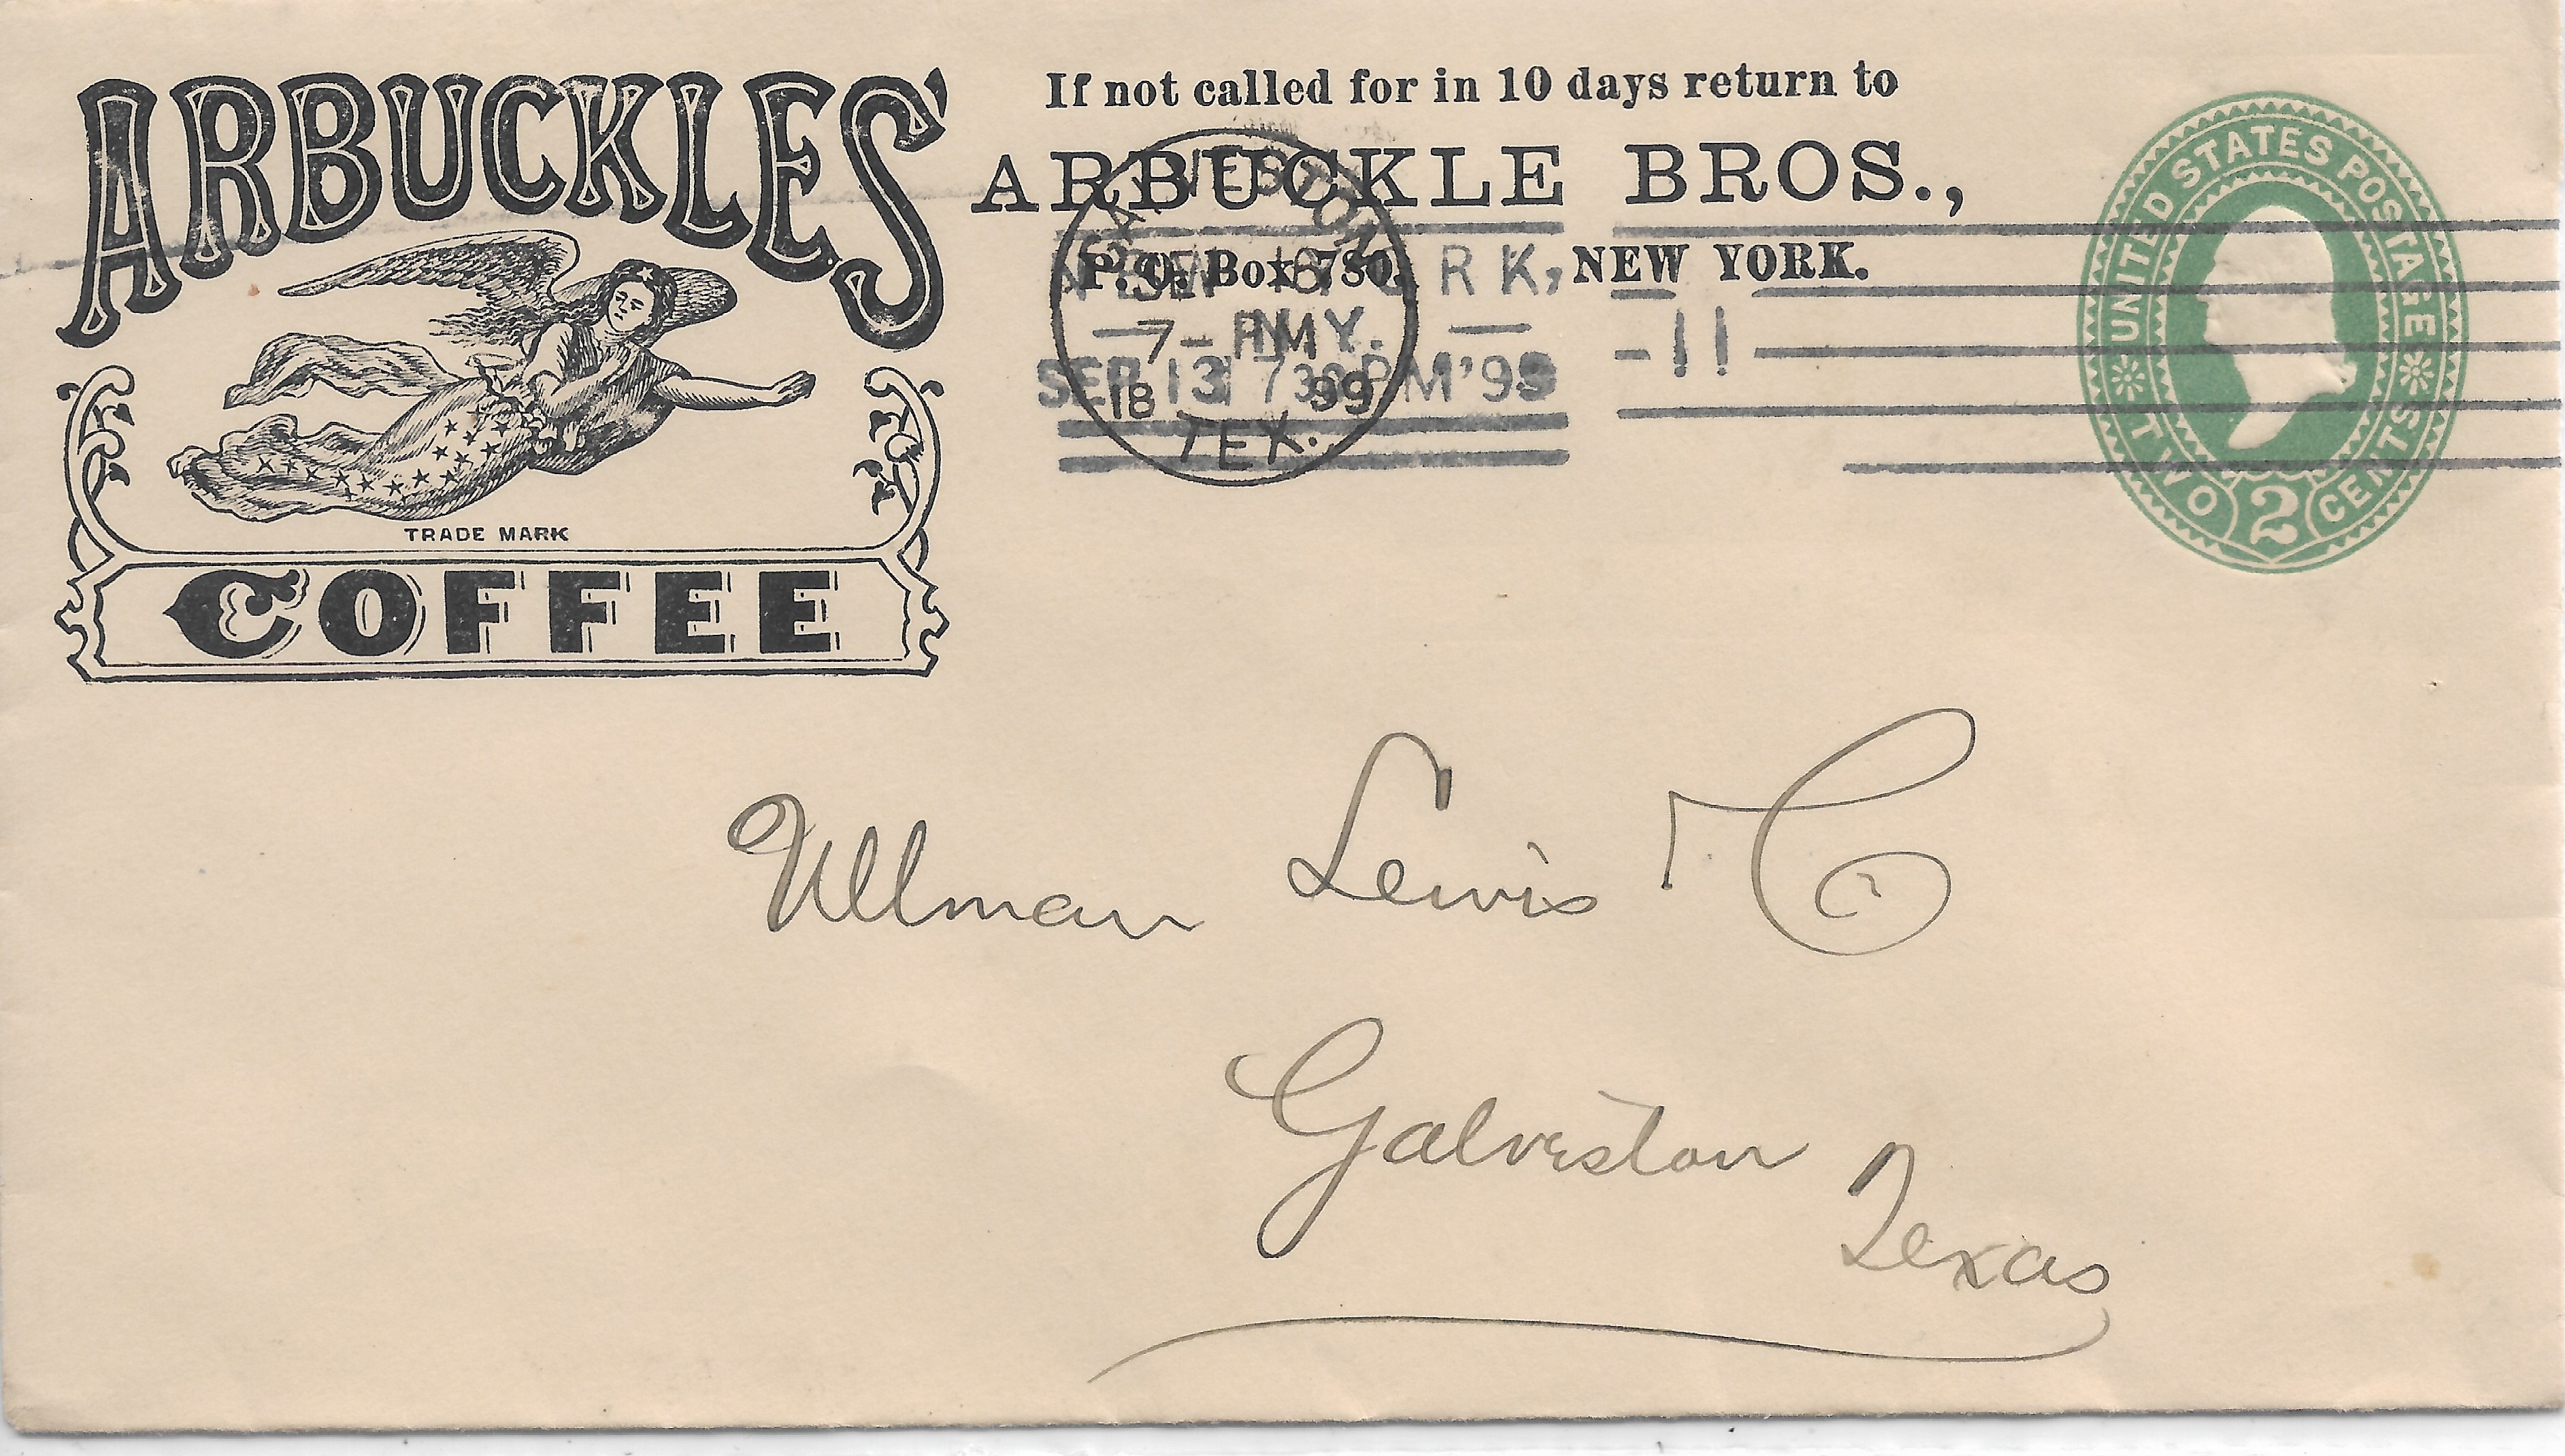 ARBUCKLES'
TRADE MARK
COFFEE
If not called for in 10 days return to
ARBUCKLE BROS.,
P. O. Box 780. NEW YORK.
GALVESTON
SEP 16
7 - PM
18 99
TEX.
NEW YORK,
N.Y.
SEP 13 730 PM '99
11
UNITED STATES POSTAGE
TWO 2 CENTS
Ullman Lewis & Co
Galveston
Texas